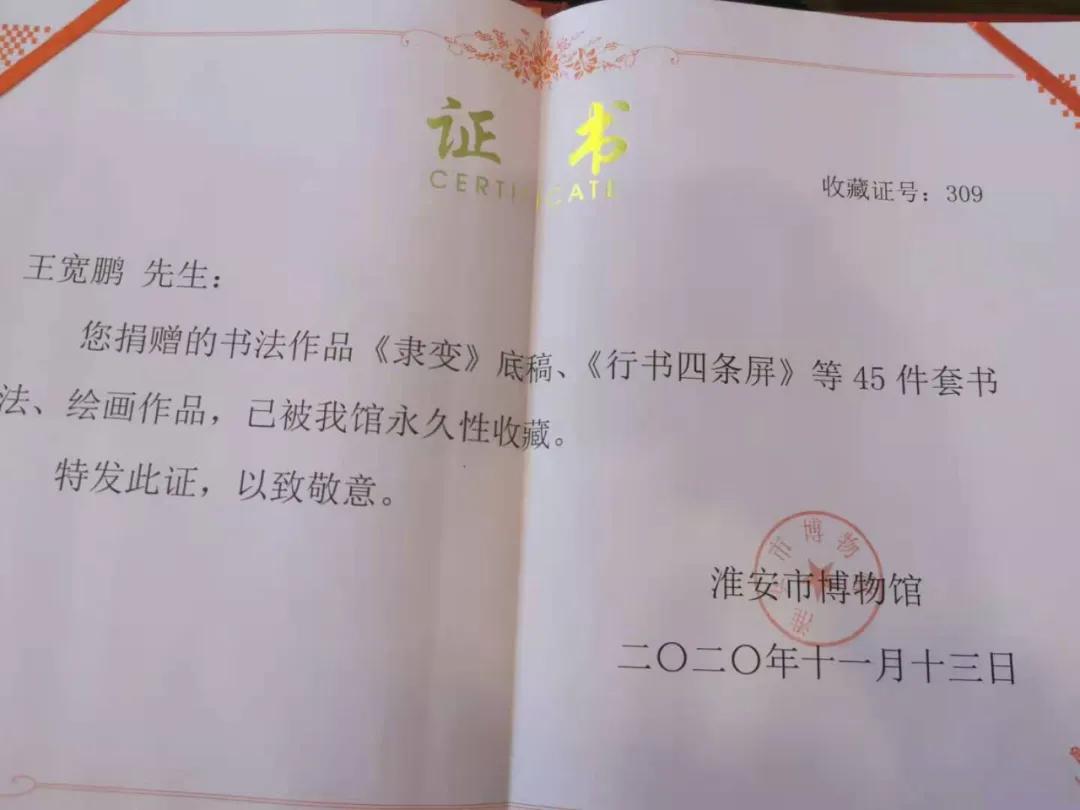 证书
CERTIFICATE
收藏证号：309
王宽鹏 先生：
您捐赠的书法作品《隶变》底稿、《行书四条屏》等 45 件套书
法、绘画作品，已被我馆永久性收藏。
特发此证，以致敬意。
淮安市博物馆
淮安市博物
二〇二〇年十一月十三日